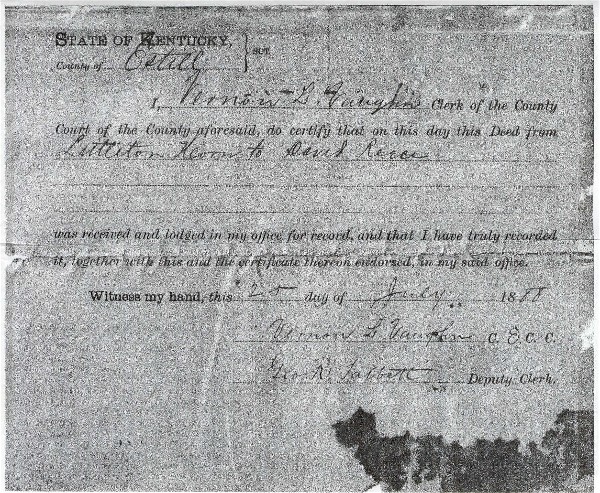 STATE OF KENTUCKY, } SCT
County of Estill
I, Vernon L. Vaughn Clerk of the County
Court of the County aforesaid, do certify that on this day this Deed from
Littleton to David
was received and lodged in my office for record, and that I have truly recorded
it, together with this and the certificate thereon endorsed, in my said office.
Witness my hand, this 20 day of July 1888
Vernon L Vaughn C. E. C. C.
Geo R. Deputy Clerk.